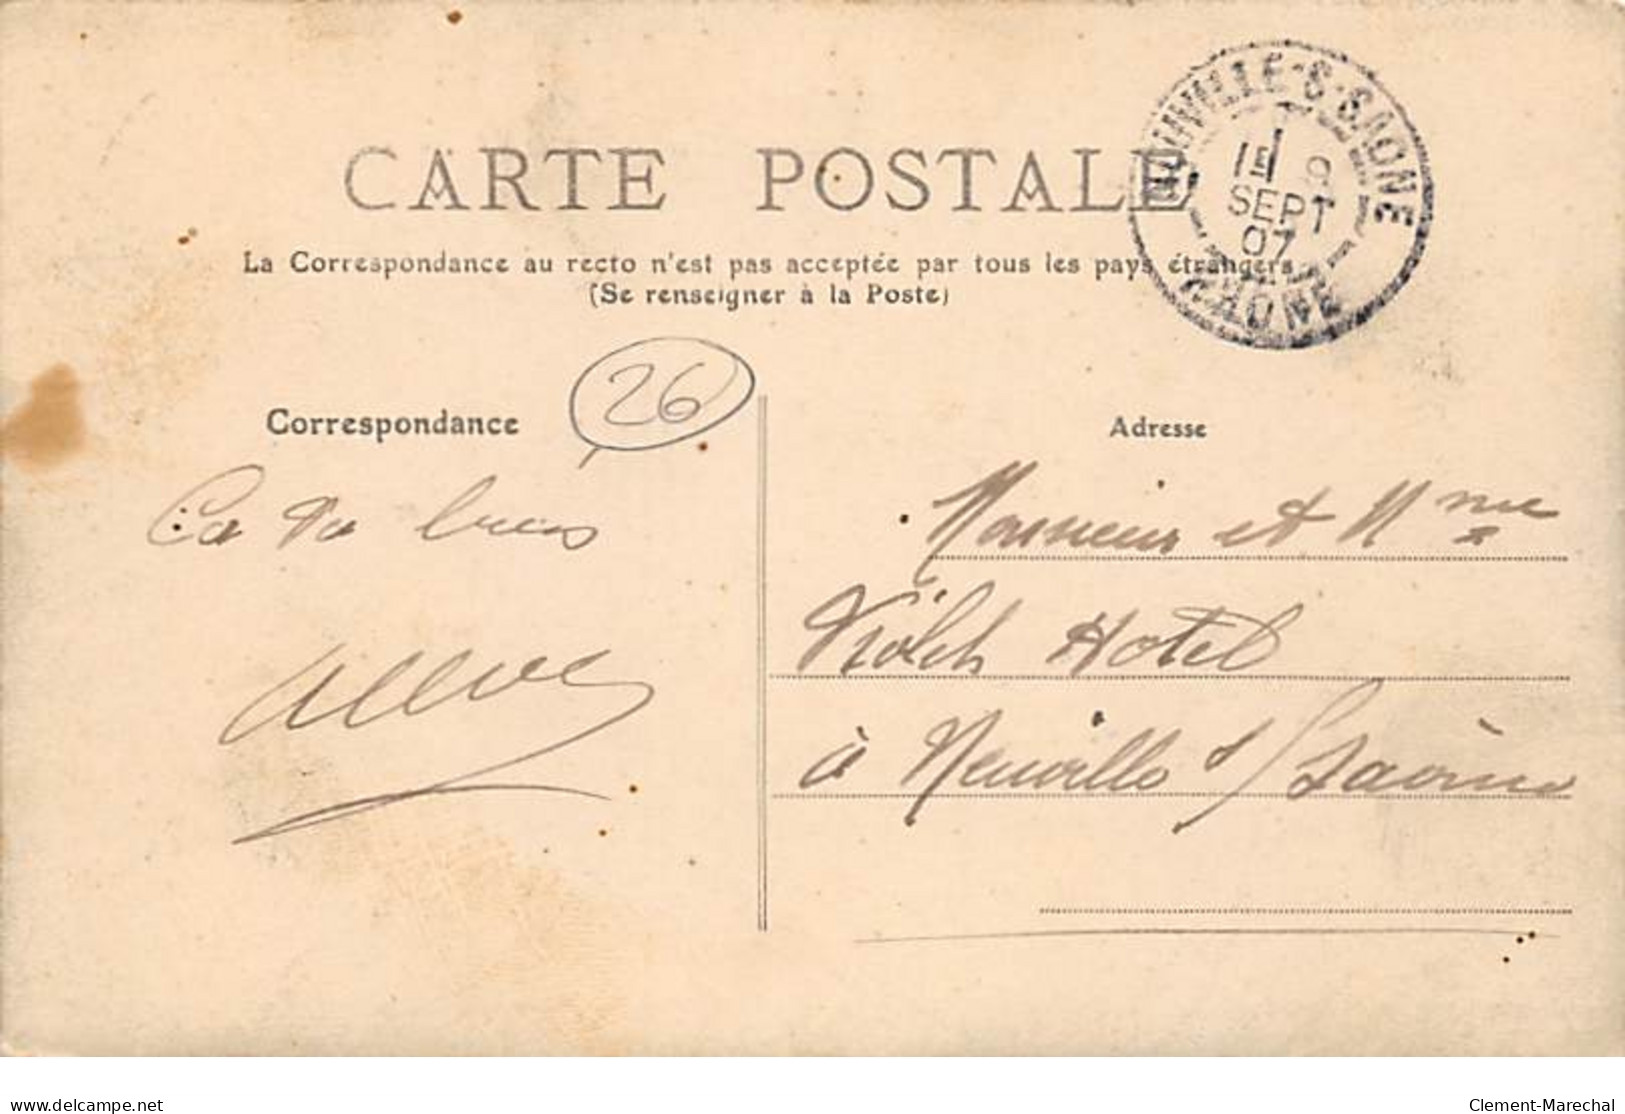 CARTE POSTALE
La Correspondance au recto n'est pas acceptée par tous les pays étrangers
(Se renseigner à la Poste)
NEUVILLE-S-SAONE
9
SEPT
07
RHONE
26
Correspondance
Adresse
Ca va bien
Monsieur et Mme
Hotel
à Neuville s/ Saône
delcampe.net
Clement-Marechal